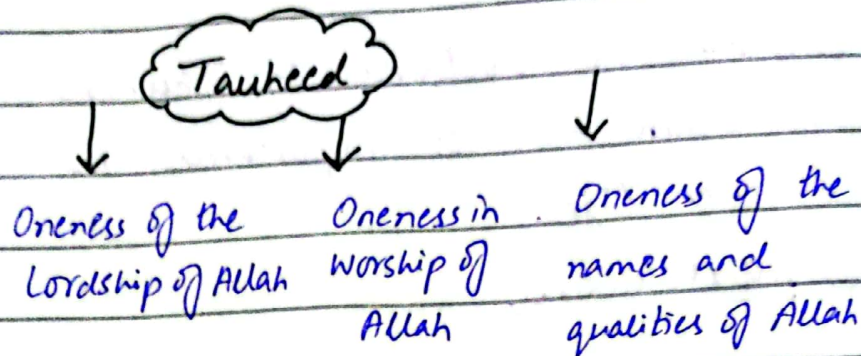 Tauheed
Oneness of the
Lordship of Allah
Oneness in
worship of
Allah
Oneness of the
names and
qualities of Allah